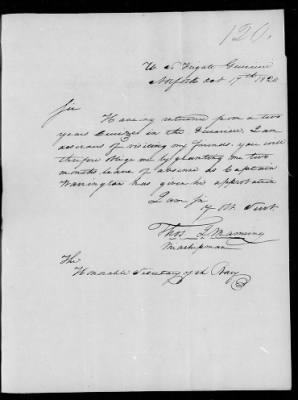 120.
U. S. Frigate Guerriere
Norfolk Oct 17th 1820
Sir
Having returned from a two
years Cruize in the Guerriere, I am
desirous of visiting my friends. you will
therefore oblige me by granting me two
months leave of absence as Captain
Warrington has given his approbation
I am Sir
yr. Ob. Servt.
Thos.
Midshipman
The
Honorable Secretary of the Navy